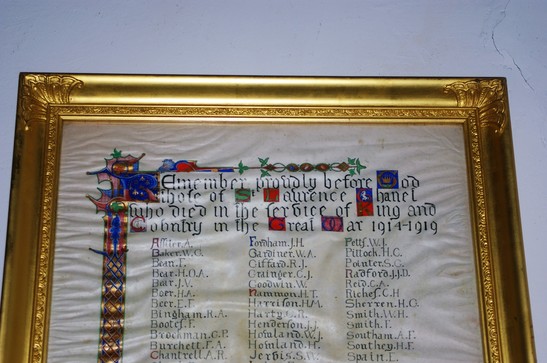 Remember proudly before God
those of St Laurence Chapel
who died in the service of King and
Country in the Great War 1914-1919
Fordham.J.H. Petts.W.J.
Baker.W.G. Gardiner.W.A. Pillock.H.C.
Bean.E. Giffard.R.J. Pointer.S.G.
Bear.H.O.A. Grainger.C.J. Radford.J.J.D.
Bear.J.V. Goodwin.W. Reid.C.A.
Boer.H.A. Hammon.H.T. Riches.C.H.
Beer.E.F. Harrison.H.A. Sherren.H.G.
Bingham.R.A. Harty.S.R. Smith.W.H.
Bootes.F. Henderson.J.J. Smith.F.
Brockman.G.P. Howland.W.J. Southam.A.F.
Burchett.F.A. Howland.H.F. Southey.H.F.
Chantrell.A.R. Jervis.S.W. Spain.E.